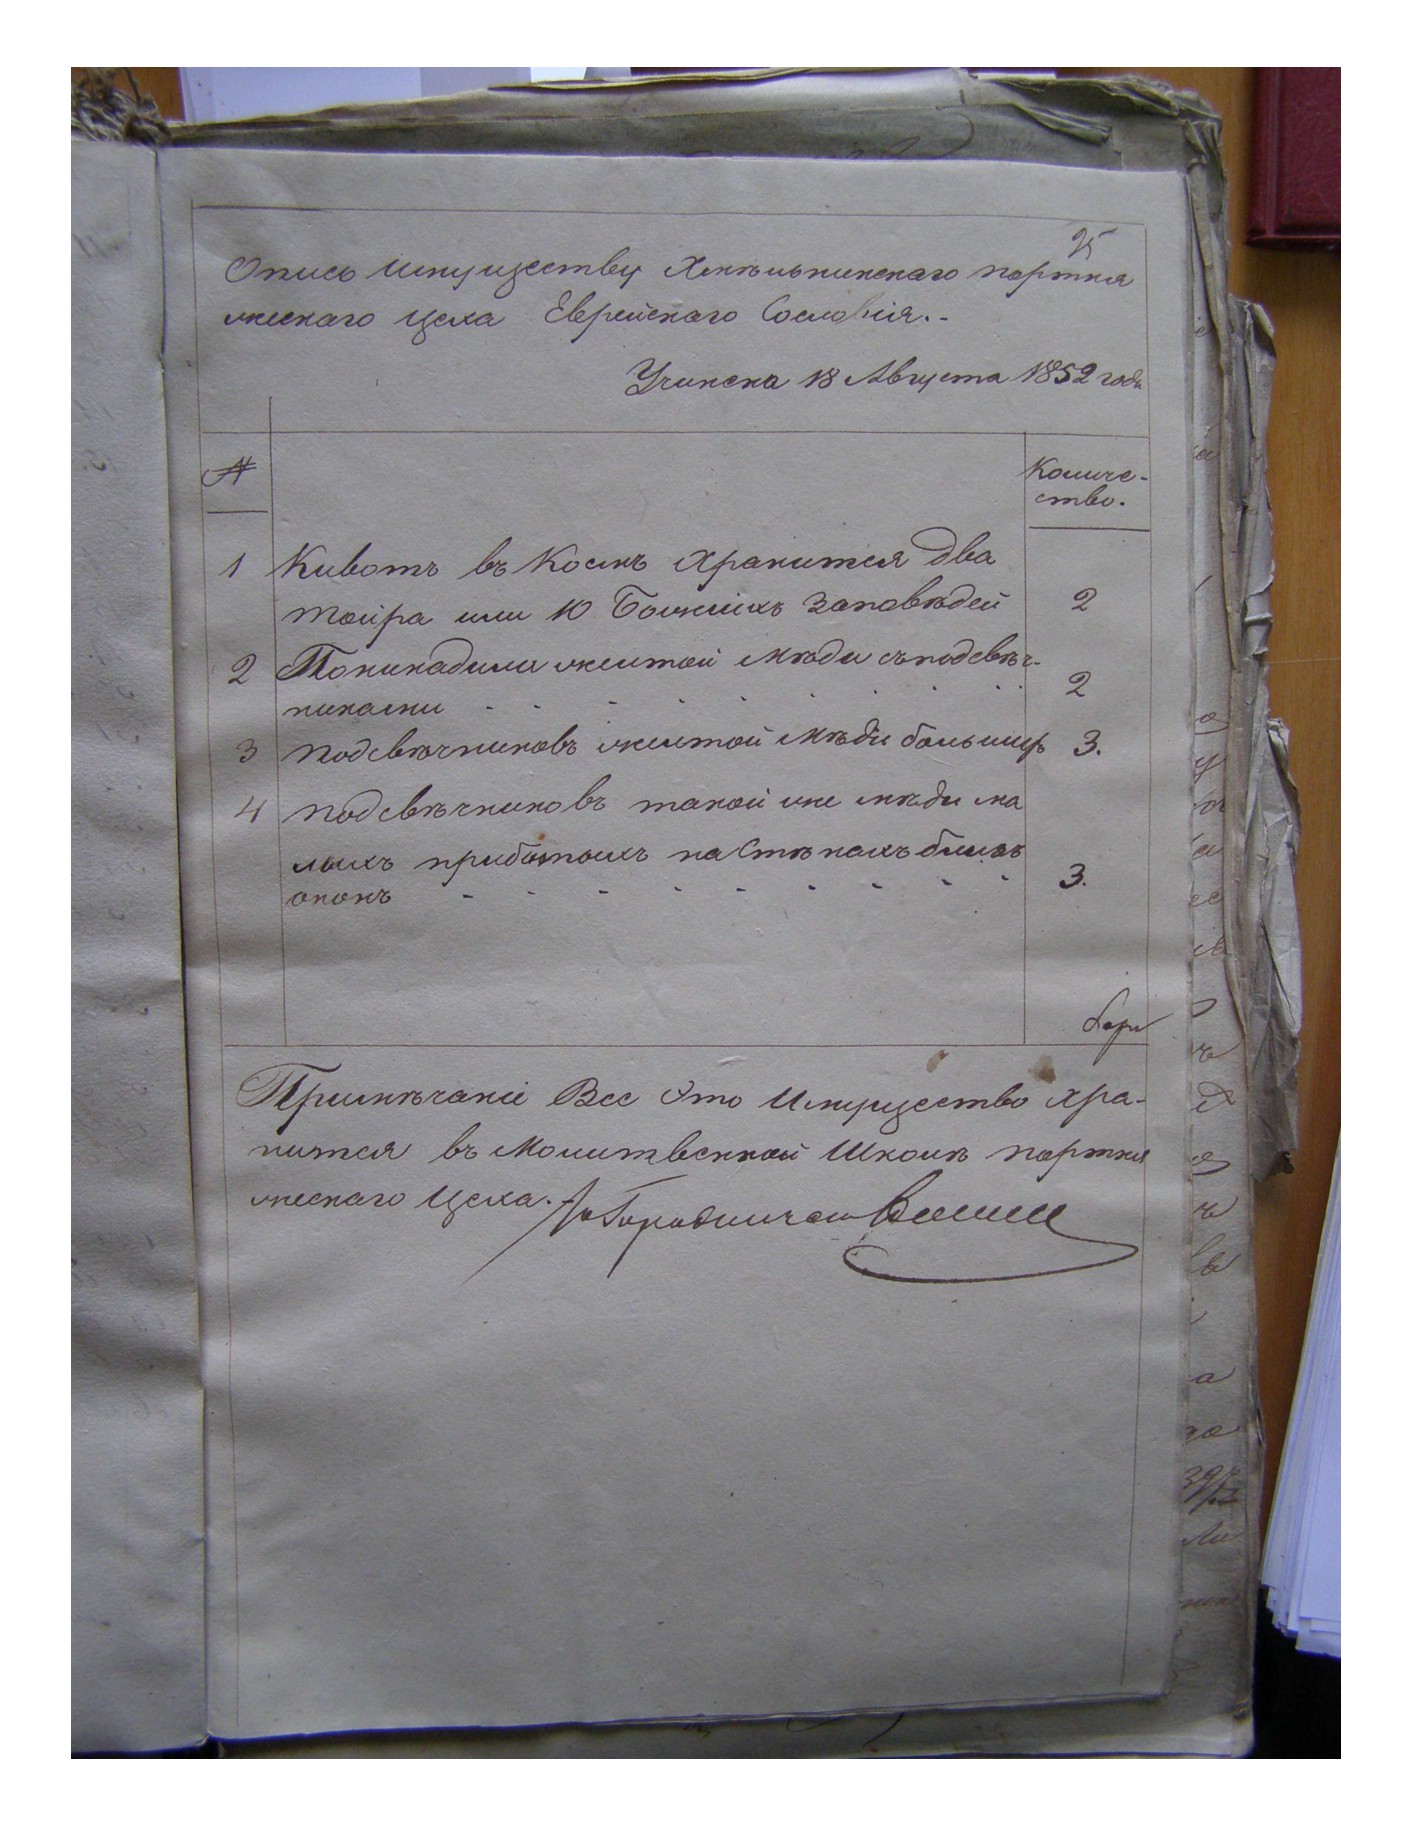 25
Опись имуществу Хмѣльникскаго портня
жескаго цеха Еврейскаго Сословія.-
Учинена 18 Августа 1852 года
№
Количе-
ство.
1 Кивотъ въ Коемъ хранится два
тоира или 10 Божіихъ Заповѣдей 2
2 Поникадили желтой мѣди съ подсвѣч-
никами - - - - - - - - 2
3 Подсвѣчниковъ желтой мѣди большихъ 3.
4 Подсвѣчниковъ такой же мѣди ма
лыхъ прибытыхъ на Стѣнахъ близъ
оконъ - - - - - - - - - 3.
Примѣчаніе Все Это Имущество хра-
нится въ Молитвенной Школѣ портня
жескаго Цеха. Городничей